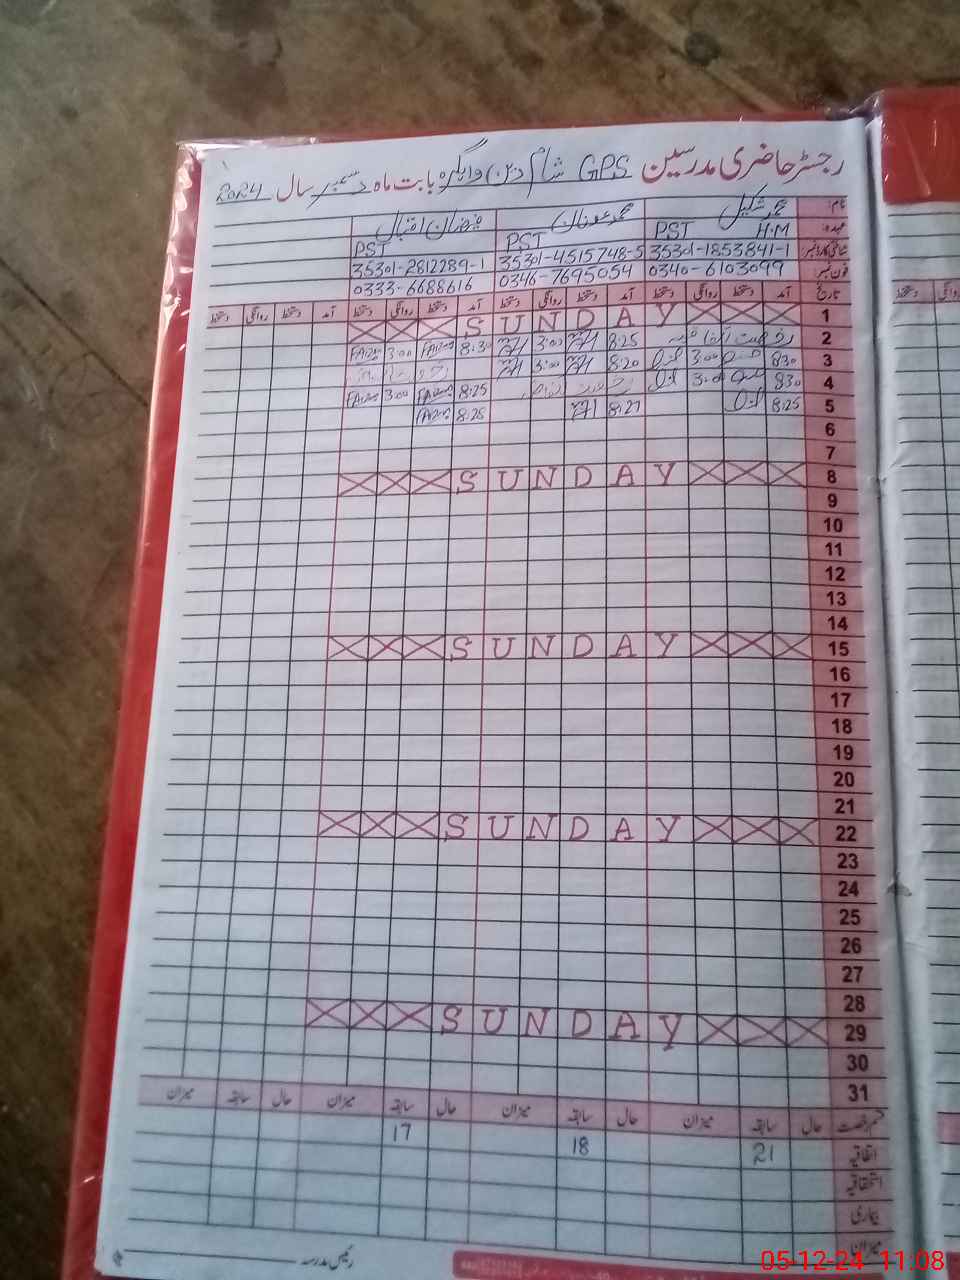 رجسٹر حاضری مدرسین GPS شام دین وایگرہ بابت ماہ دسمبر سال 2024
نام: محمد شکیل محمد عدنان فیضان اقبال
عہدہ: H.M PST PST PST
شناختی کارڈ نمبر: 35301-1853841-1 35301-4515748-5 35301-2812289-1
فون نمبر: 0340-6103099 0346-7695054 0333-6688616
تاریخ آمد دستخط روانگی دستخط آمد دستخط روانگی دستخط آمد دستخط روانگی دستخط آمد دستخط روانگی دستخط
1 S U N D A Y
2 8:25 3:00 8:30 3:00
3 8:30 3:00 8:20 3:00
4 8:30 3:00 8:25 3:00
5 8:25 8:27 8:28
6
7
8 S U N D A Y
9
10
11
12
13
14
15 S U N D A Y
16
17
18
19
20
21
22 S U N D A Y
23
24
25
26
27
28
29 S U N D A Y
30
31
قسم رخصت حال سابقہ میزان حال سابقہ میزان حال سابقہ میزان حال سابقہ میزان
اتفاقیہ 21 18 17
استحقاقیہ
بیماری
میزان
رئیس مدرسہ
05-12-24 11:08